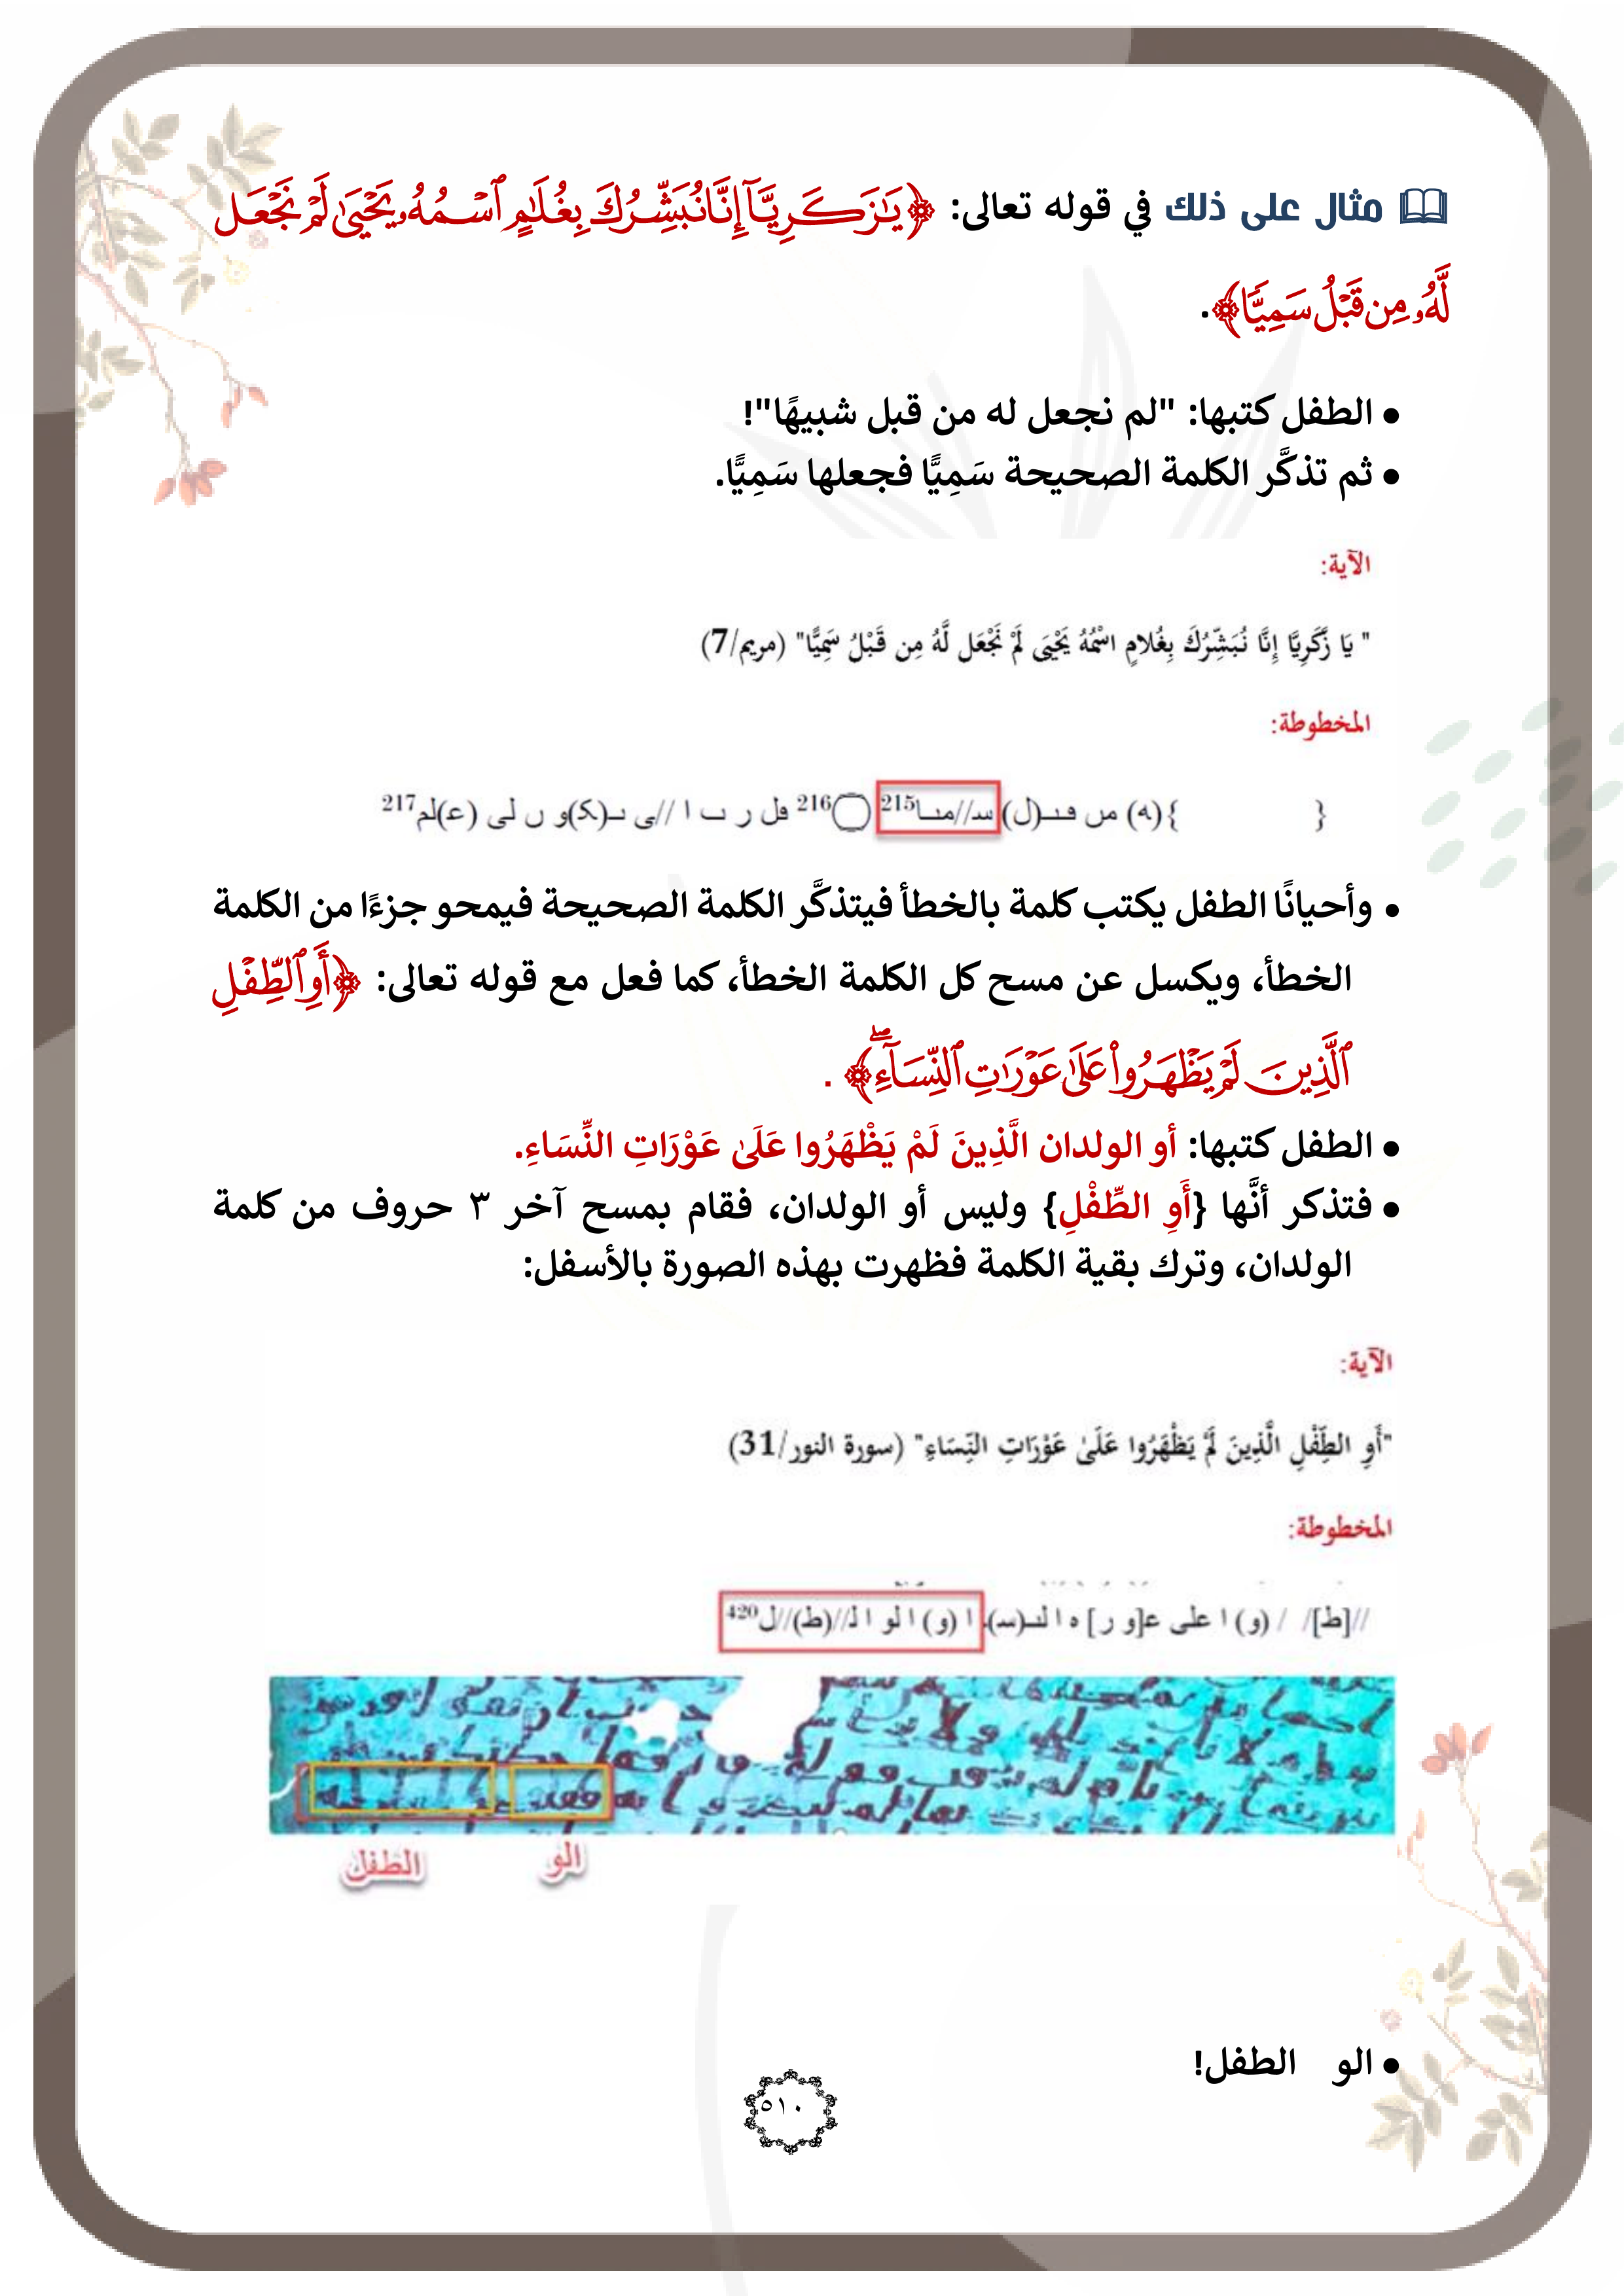 مثال على ذلك في قوله تعالى: ﴿يَٰزَكَرِيَّآ إِنَّا نُبَشِّرُكَ بِغُلَٰمٍ ٱسۡمُهُۥ يَحۡيَىٰ لَمۡ نَجۡعَل
لَّهُۥ مِن قَبۡلُ سَمِيّٗا﴾.
● الطفل كتبها: "لم نجعل له من قبل شبيهًا"!
● ثم تذكَّر الكلمة الصحيحة سَمِيًّا فجعلها سَمِيًّا.
الآية:
" يَا زَكَرِيَّا إِنَّا نُبَشِّرُكَ بِغُلامٍ اسْمُهُ يَحْيَى لَمْ نَجْعَل لَّهُ مِن قَبْلُ سَمِيًّا" (مريم/7)
المخطوطة:
● وأحيانًا الطفل يكتب كلمة بالخطأ فيتذكَّر الكلمة الصحيحة فيمحو جزءًا من الكلمة
الخطأ، ويكسل عن مسح كل الكلمة الخطأ، كما فعل مع قوله تعالى: ﴿أَوِ ٱلطِّفۡلِ
ٱلَّذِينَ لَمۡ يَظۡهَرُواْ عَلَىٰ عَوۡرَٰتِ ٱلنِّسَآءِۖ﴾ .
● الطفل كتبها: أو الولدان الَّذِينَ لَمْ يَظْهَرُوا عَلَىٰ عَوْرَاتِ النِّسَاءِ.
● فتذكر أنَّها {أَوِ الطِّفْلِ} وليس أو الولدان، فقام بمسح آخر ٣ حروف من كلمة
الولدان، وترك بقية الكلمة فظهرت بهذه الصورة بالأسفل:
الآية:
"أَوِ الطِّفْلِ الَّذِينَ لَمْ يَظْهَرُوا عَلَىٰ عَوْرَاتِ النِّسَاءِ" (سورة النور/31)
المخطوطة:
//[ط]/ / (و) ا على ع[و ر] ه ا لنـ(سـ). ا (و) ا لو ا لـ//(ط)//ل420
الو
الطفل
● الو الطفل!
٥١٠